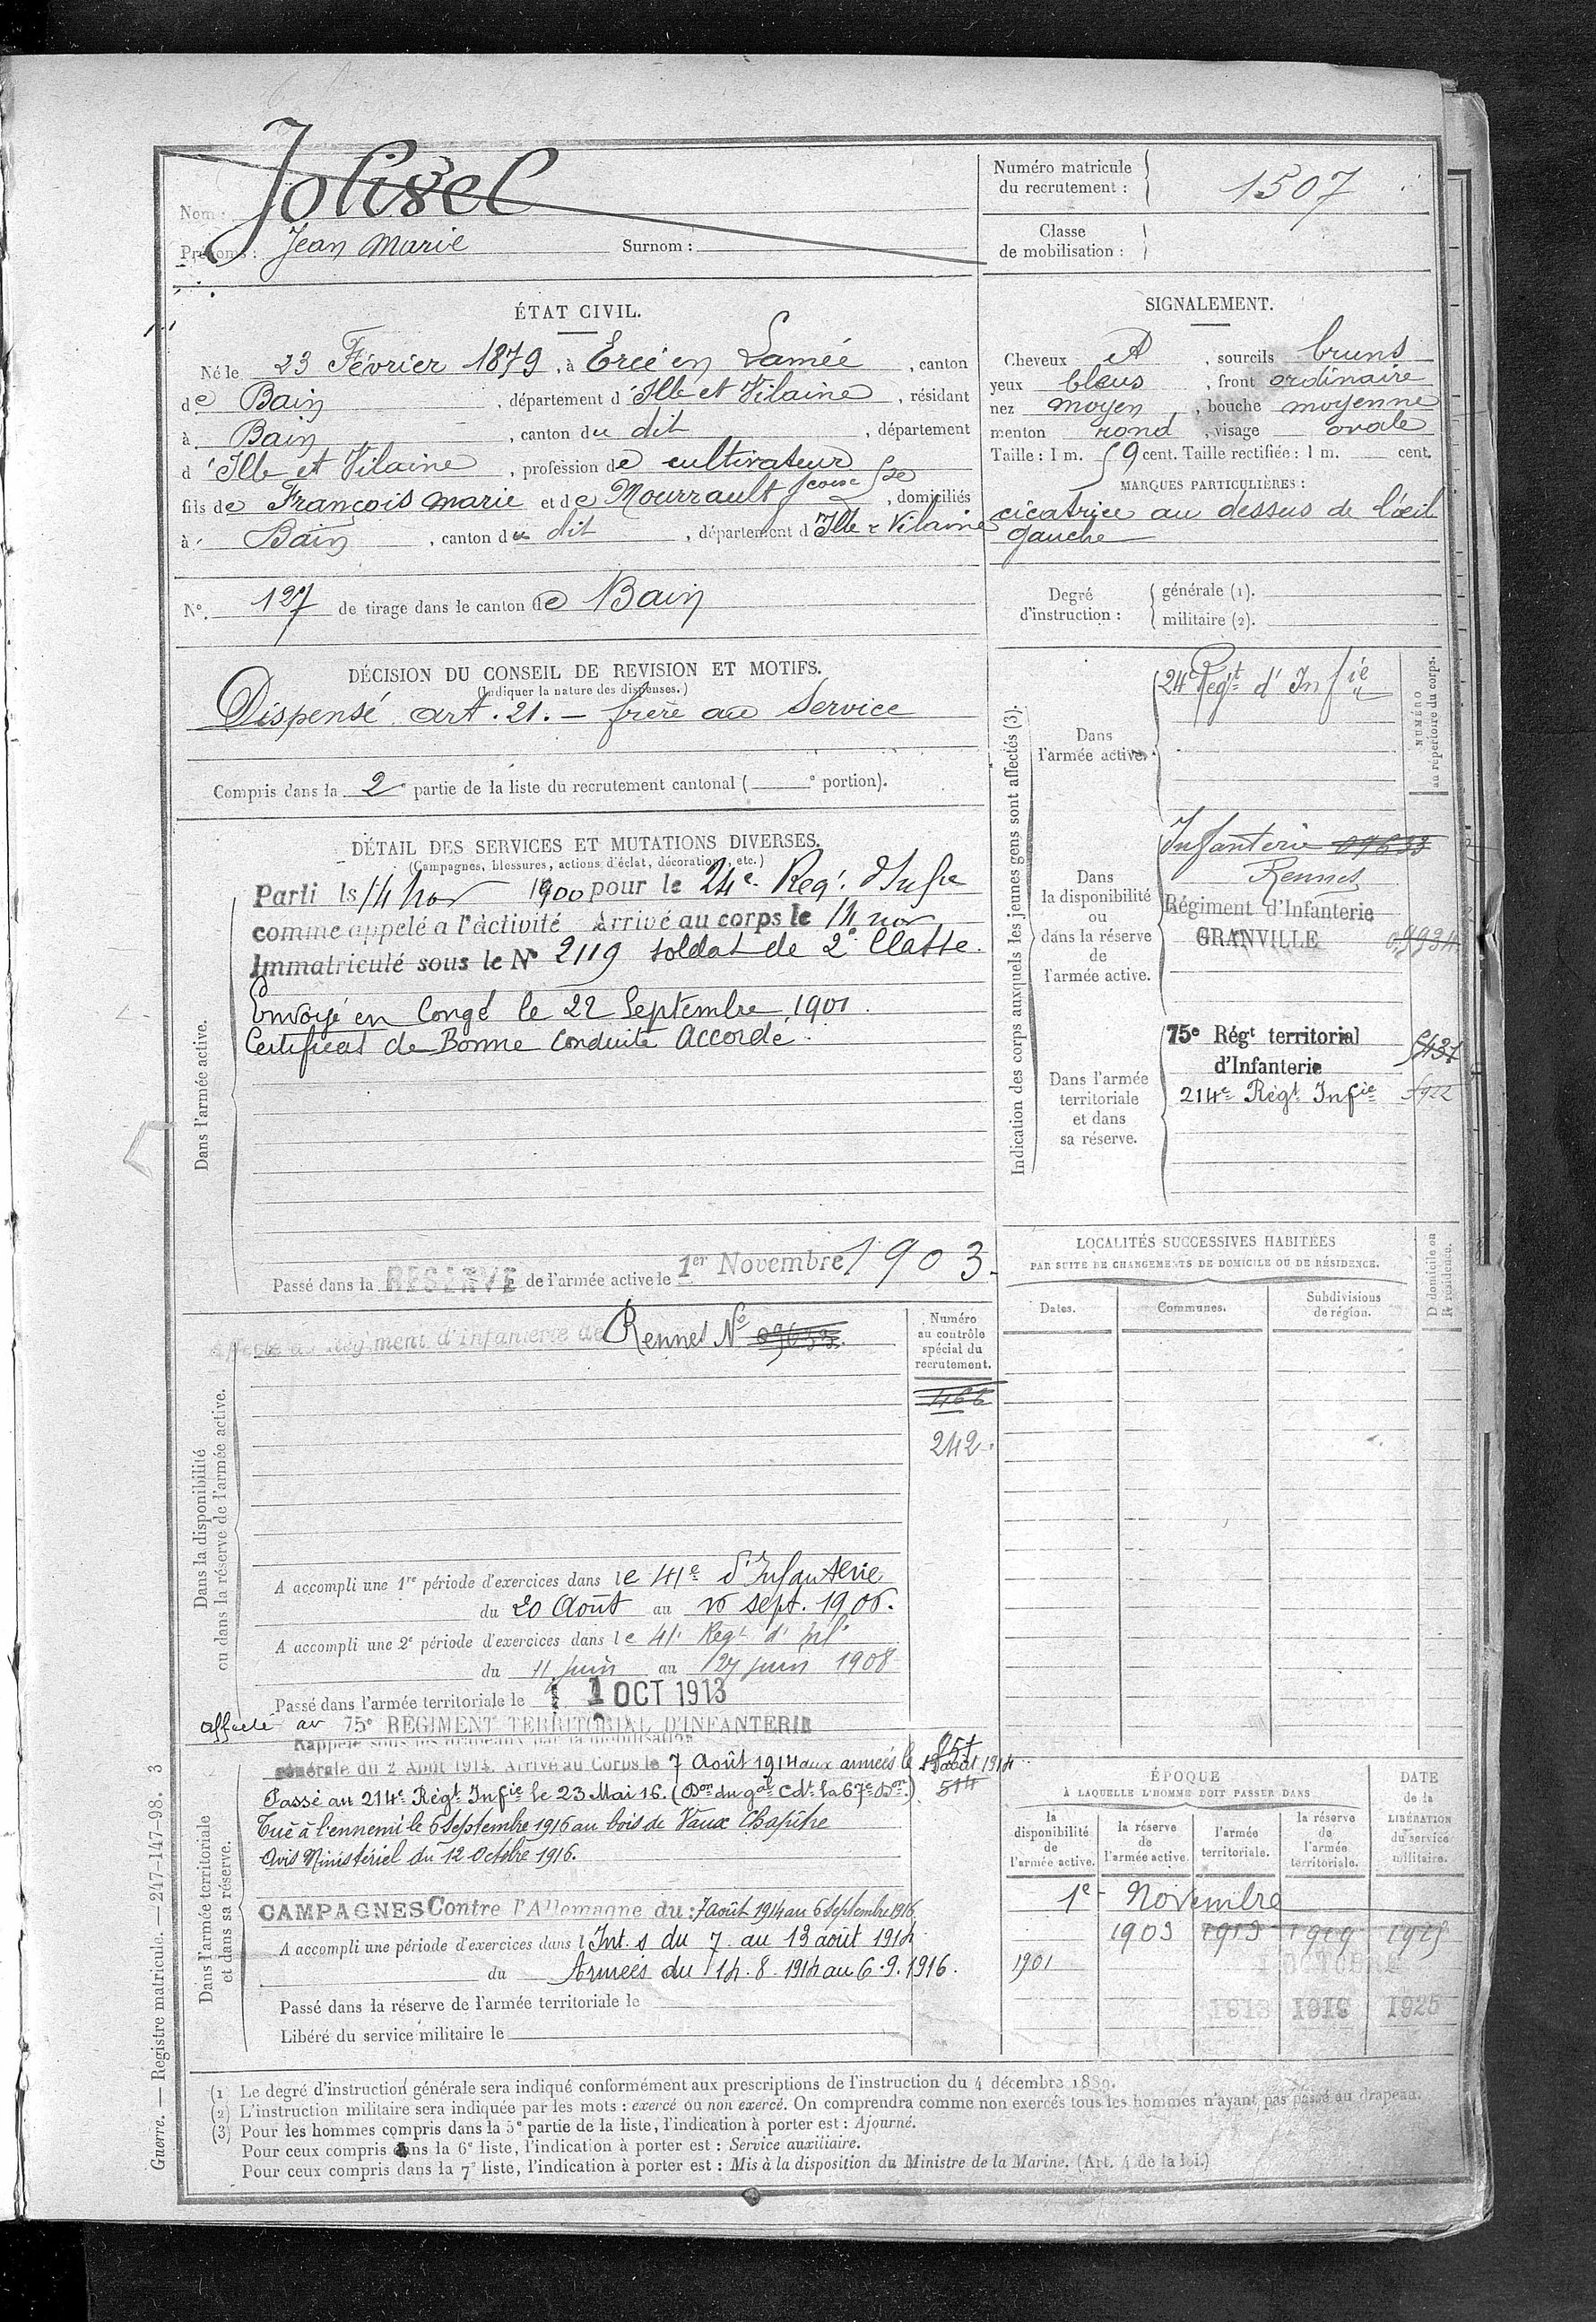 Nom : Jolivel
Prénoms : Jean Marie Surnom :
Numéro matricule du recrutement : 1507
Classe de mobilisation :
ÉTAT CIVIL.
Né le 23 Février 1879, à Ercé en Lamée, canton
de Bain, département d'Ille et Vilaine, résidant
à Bain, canton du dit, département
d'Ille et Vilaine, profession de cultivateur
fils de François Marie et de Mourrault fcoise Jse, domiciliés
à Bain, canton du dit, département d Ille & Vilaine
N° 127 de tirage dans le canton de Bain
SIGNALEMENT.
Cheveux et, sourcils bruns
yeux bleus, front ordinaire
nez moyen, bouche moyenne
menton rond, visage ovale
Taille : 1 m. 59 cent. Taille rectifiée : 1 m. cent.
MARQUES PARTICULIÈRES :
cicatrice au dessus de l'œil
gauche
Degré d'instruction : générale (1).
militaire (2).
DÉCISION DU CONSEIL DE REVISION ET MOTIFS.
(Indiquer la nature des dispenses.)
Dispensé art. 21. – frère au Service
Compris dans la 2e partie de la liste du recrutement cantonal ( e portion).
DÉTAIL DES SERVICES ET MUTATIONS DIVERSES.
(Campagnes, blessures, actions d'éclat, décorations, etc.)
Dans l'armée active.
Parti le 14 nov 1900 pour le 24e Reg. d'Infie
comme appelé a l'activité Arrivé au corps le 14 nov
Immatriculé sous le N° 2119 soldat de 2e Classe.
Envoyé en Congé le 22 Septembre 1901.
Certificat de Bonne Conduite Accordé.
Passé dans la RESERVE de l'armée active le 1er Novembre 1903.
Indication des corps auxquels les jeunes gens sont affectés (3).
NUMÉRO au répertoire du corps.
Dans l'armée active.
24e Régt d'Infie
Dans la disponibilité ou dans la réserve de l'armée active.
Infanterie 09633
Rennes
Régiment d'Infanterie
GRANVILLE 09934
Dans l'armée territoriale et dans sa réserve.
75e Régt territorial
d'Infanterie
214e Régt Infie
LOCALITÉS SUCCESSIVES HABITÉES
PAR SUITE DE CHANGEMENTS DE DOMICILE OU DE RÉSIDENCE.
Dates. Communes. Subdivisions de région. D domicile ou R résidence.
Dans la disponibilité ou dans la réserve de l'armée active.
Affecté au Régiment d'Infanterie de Rennes N° 09633.
Numéro au contrôle spécial du recrutement.
466
242
A accompli une 1re période d'exercices dans le 41e d'Infanterie
du 20 Août au 16 sept. 1906.
A accompli une 2e période d'exercices dans le 41e Regt d'Inf.
du 11 juin au 27 juin 1908
Passé dans l'armée territoriale le 1 OCT 1913
Dans l'armée territoriale et dans sa réserve.
affecté au 75e REGIMENT TERRITORIAL D'INFANTERIE
Rappelé sous les drapeaux par la mobilisation
générale du 2 Août 1914. Arrivé au Corps le 7 Août 1914 aux armées le août 1914
Passé au 214e Régt Infie le 23 Mai 16. (Don du gal Cdt la 67e Don.) 514
Tué à l'ennemi le 6 Septembre 1916 au bois de Vaux Chapitre
Avis Ministériel du 12 Octobre 1916.
CAMPAGNES Contre l'Allemagne du : 7 Août 1914 au 6 Septembre 1916
A accompli une période d'exercices dans l Int. s du 7 au 13 août 1914
du Armées du 14.8.1914 au 6.9.1916.
Passé dans la réserve de l'armée territoriale le
Libéré du service militaire le
ÉPOQUE
À LAQUELLE L'HOMME DOIT PASSER DANS
la disponibilité de l'armée active. la réserve de l'armée active. l'armée territoriale. la réserve de l'armée territoriale. DATE de la LIBÉRATION du service militaire.
1er Novembre
1903 1913 1919
1 OCTOBRE
1901
1913 1919 1925
(1) Le degré d'instruction générale sera indiqué conformément aux prescriptions de l'instruction du 4 décembre 1889.
(2) L'instruction militaire sera indiquée par les mots : exercé ou non exercé. On comprendra comme non exercés tous les hommes n'ayant pas passé au drapeau.
(3) Pour les hommes compris dans la 5e partie de la liste, l'indication à porter est : Ajourné.
Pour ceux compris dans la 6e liste, l'indication à porter est : Service auxiliaire.
Pour ceux compris dans la 7e liste, l'indication à porter est : Mis à la disposition du Ministre de la Marine. (Art. 4 de la loi.)
Guerre. — Registre matricule. — 247-147-98. 3